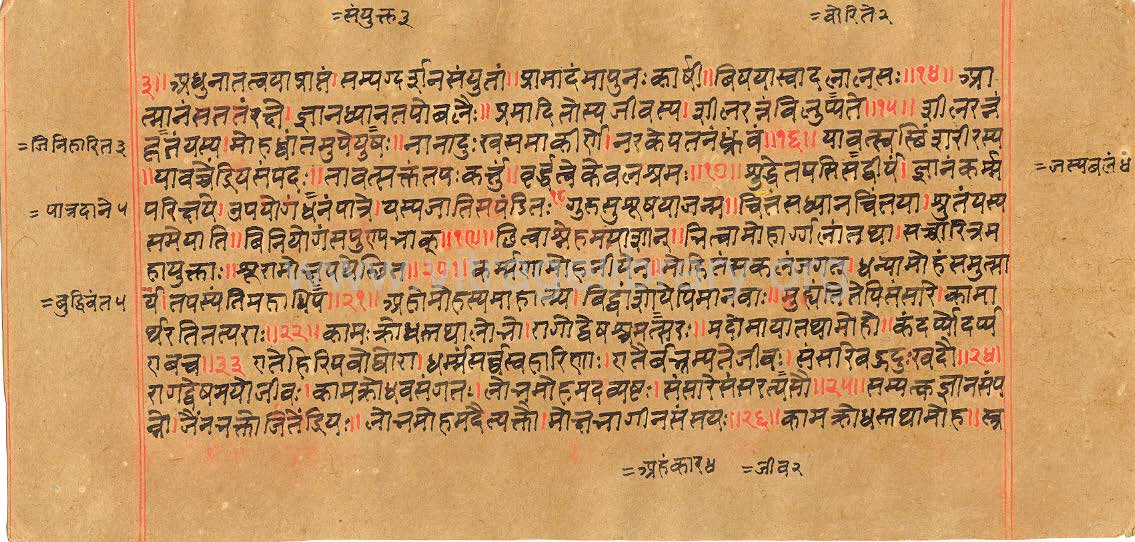 =संयुक्त३
=वोरिते२
३॥अधुनातत्वयाप्राप्तं।सम्यग्दर्शनसंयुतां॥प्रामादंमापुनःकार्षी।विषयास्वादलालसः॥१४॥आ
त्मानंसततंरक्षे।ज्ञानध्यानतपोबलैः॥प्रमादिनोस्यजीवस्य।शीलरत्नंविलुप्यते॥१५॥शीलरत्नं
हृतंयस्य।मोहध्वांतमुपेयुषः॥नानादुःखसमाकीर्णे।नरकेपतनंध्रुवं॥१६॥यावत्स्वास्थ्यंशरीरस्य
=जिनिहारित३
॥यावच्चेंद्रियसंपदः॥तावत्युक्तंतपःकर्त्तुं।वृर्द्धत्वेकेवलश्रमः॥१७॥शुद्धेतपसिसद्वीर्यं।ज्ञानंकर्म्म
=जस्यबलं४
परिक्षये।उपयोगंर्धनंपात्रे।यस्ययातिसपंडितः१८गुरुसुश्रूषयाजन्म।चित्तंसध्यानचिंतया।श्रुतंयस्य
=पात्रदाने५
समेयाति॥विनियोगंसपुण्यभाक्॥१९॥छित्वास्नेहमयान्पाशान्।भित्वामोहार्ग्गलांतथा।सच्चारित्रम
हायुक्ताः।शूरामोक्षपथेस्थिताः॥२०॥
धन्यामोहंसमुत्सा
र्य।तपस्यंतिमहाधियः॥२१॥अहोमोहस्यमाहात्म्यं।विद्वांशोयेपिमानवाः॥मुह्यंतेतेपिसंसारे।कामा
=बुद्धिवंत५
र्थरतितत्पराः॥२२॥कामःक्रोधस्तथालोभो।रागोद्वेषश्चमत्सरः॥मदोमायातथामोहो।कंदर्प्पोदर्प्प
एवच॥२३एतेहिरिपवोघोरा।धर्म्मसर्वस्वहारिणाः।एतैर्बंभ्रम्यतेजीवः।संसारेबहुदुःखदौ॥२४॥
रागद्वेषमयोजीवः।कामक्रोधवसंगतः।लोभमोहमदव्यष्टः।संसारेसंसरत्यंसौ॥२५॥सम्यत्कज्ञानसंप
न्नो।जैनभक्तोजितेंद्रियः॥लोभमोहमदैस्त्यक्तो।मोक्षभागीनसंसयः॥२६॥कामक्रोधस्तथामोहा।स्त्र
=अहंकार४
=जीव२